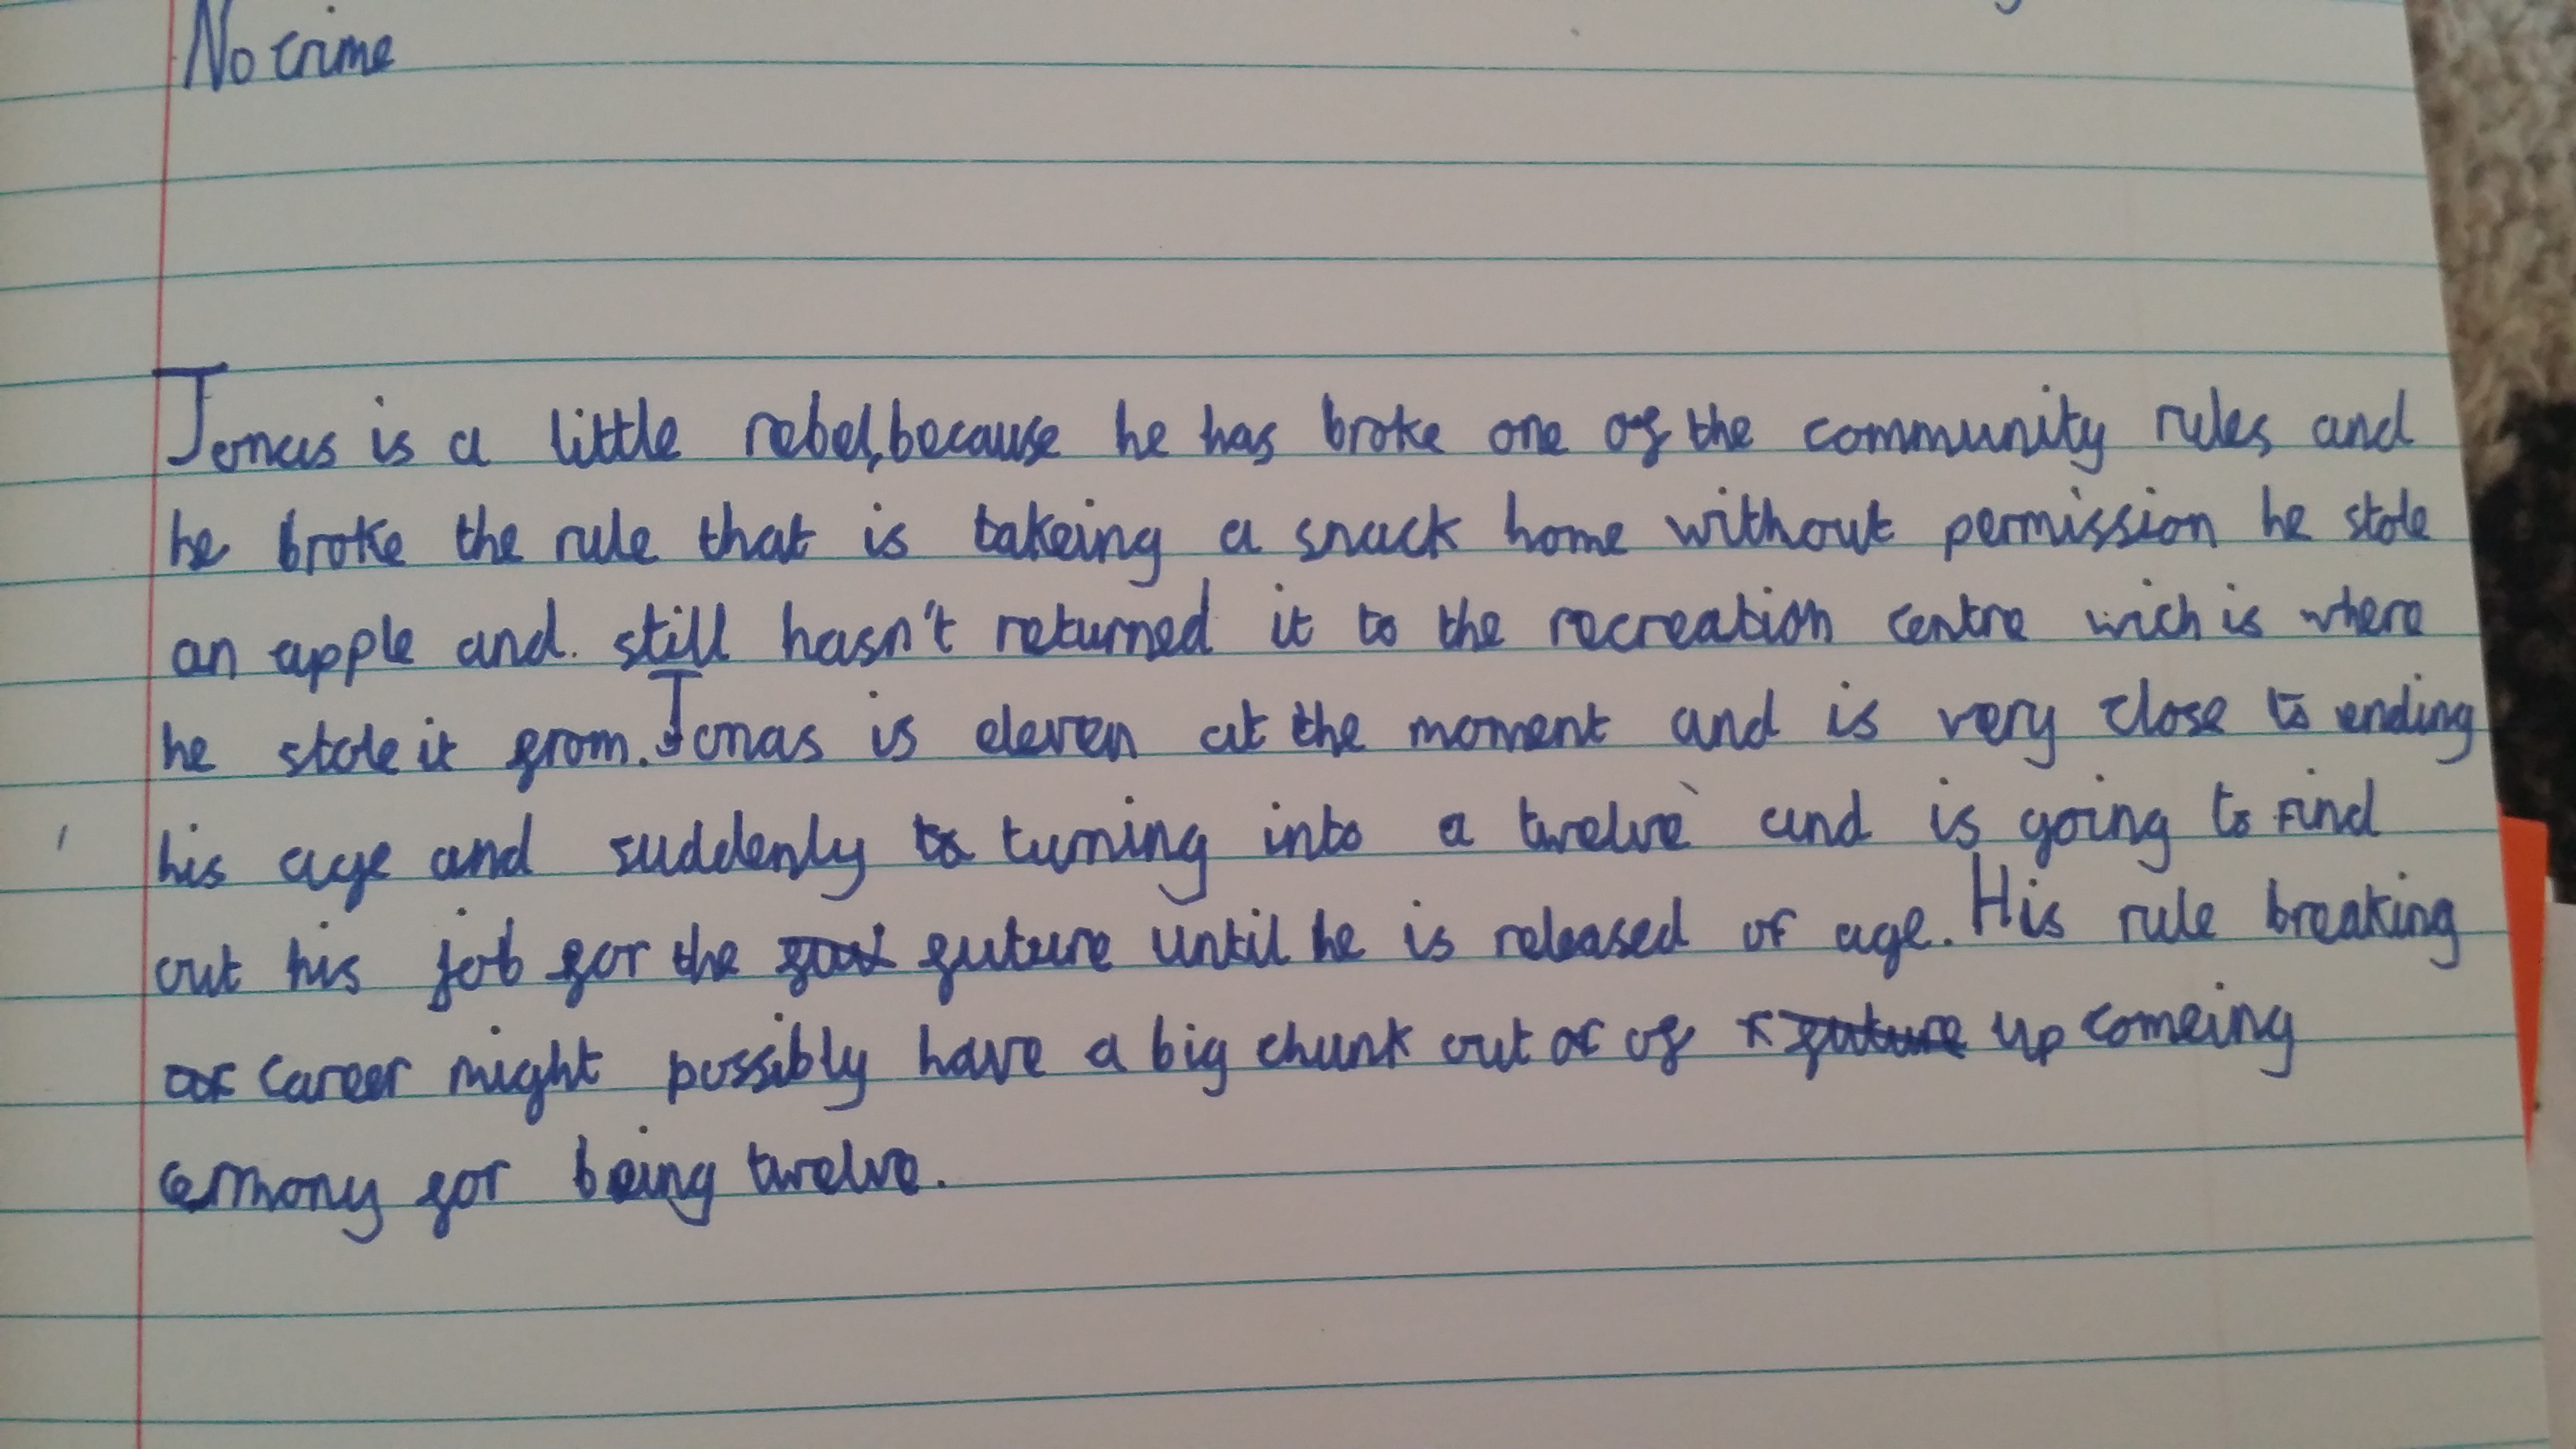 No crime
Jonas is a little rebel, because he has broke one of the community rules and
he broke the rule that is takeing a snack home without permission he stole
an apple and. still hasn't returned it to the recreation centre wich is where
he stole it from. Jonas is eleven at the moment and is very close to ending
his age and suddenly to turning into a twelve and is going to find
out his job for the future until he is released of age. His rule breaking
of career might possibly have a big chunk out of of up comeing
cermony for being twelve.